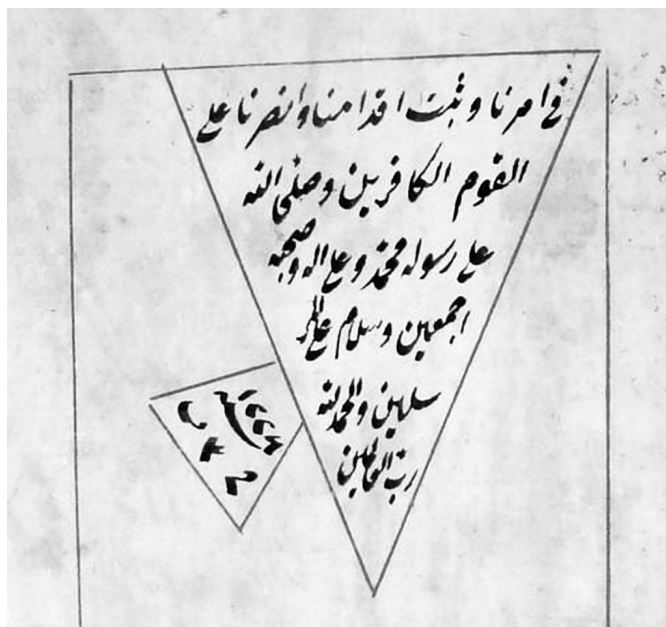 في امرنا وثبت اقدامنا وانصرنا على
القوم الكافرين وصلى الله
على رسوله محمد وعلى اله وصحبه
اجمعين وسلام على المر
سلين والحمد لله
رب العالمين